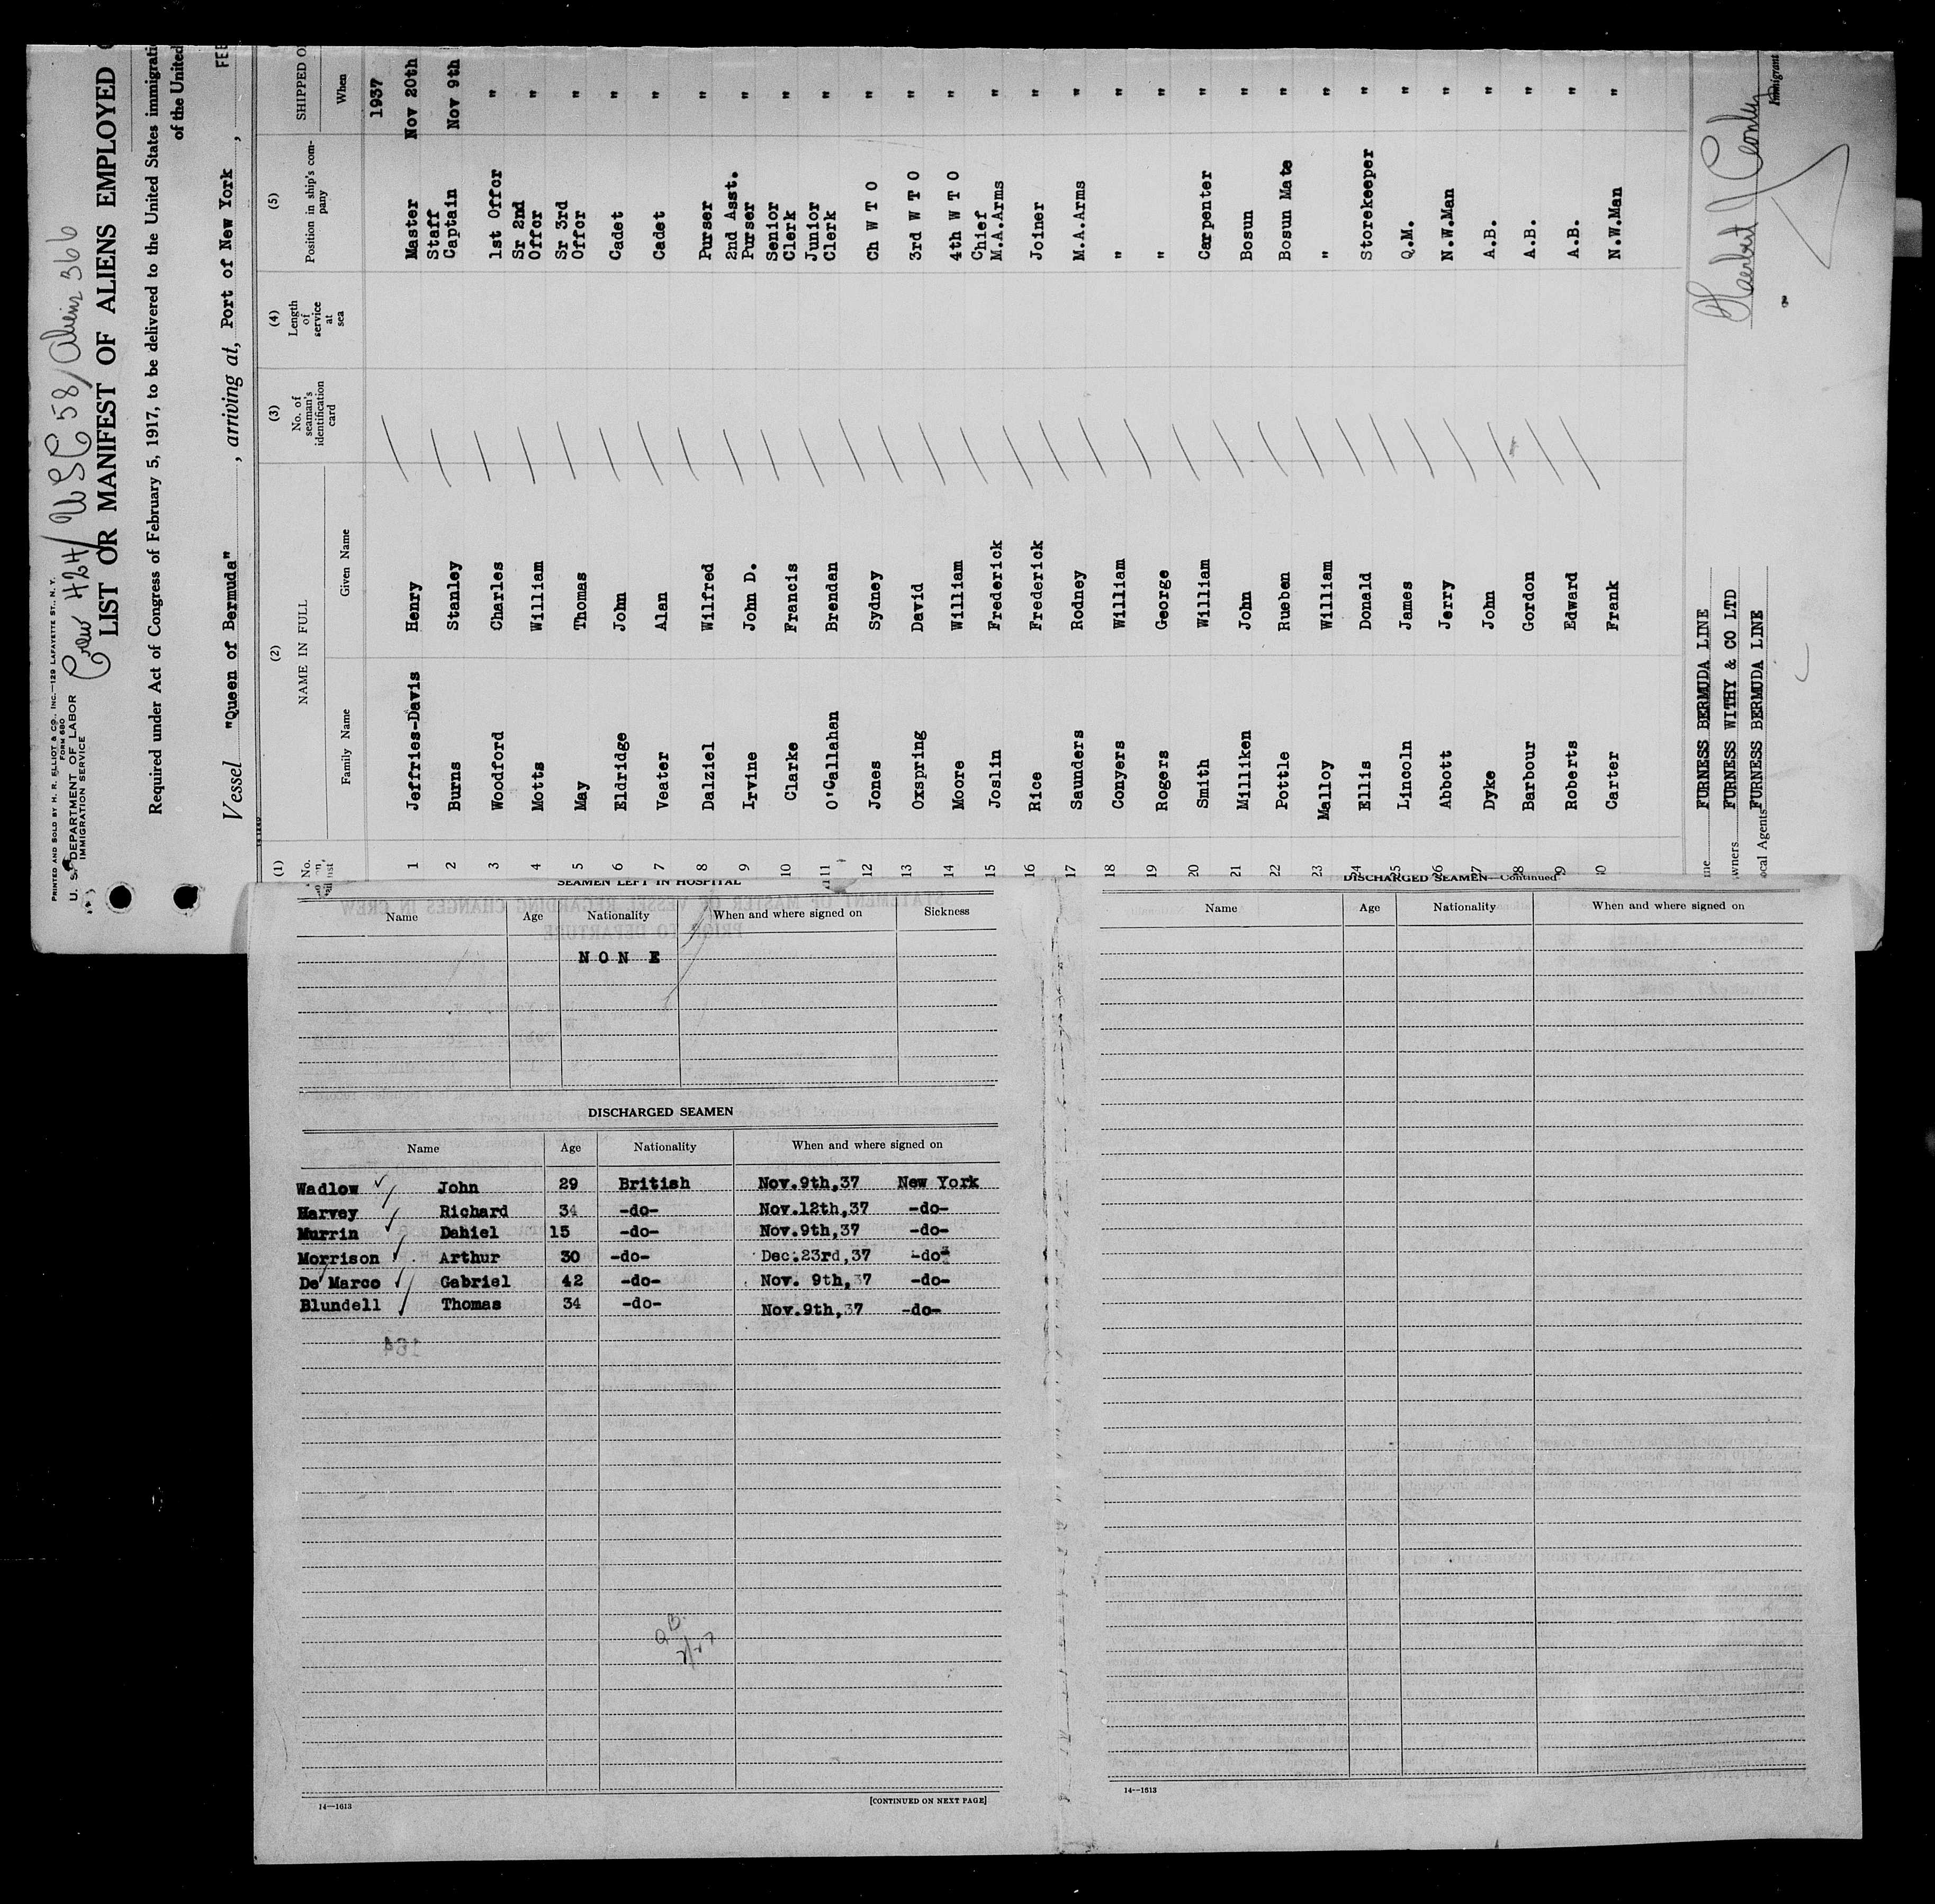 PRINTED AND SOLD BY H. R. ELLIOT & CO., INC.—129 LAFAYETTE ST., N. Y.
FORM 680
U. S. DEPARTMENT OF LABOR
IMMIGRATION SERVICE
Crew 424/ USC 58/ Aliens 366
LIST OR MANIFEST OF ALIENS EMPLOYED
Required under Act of Congress of February 5, 1917, to be delivered to the United States immigrati
of the United
Vessel "Queen of Bermuda", arriving at, Port of New York, FEB
(1) (2) (3) (4) (5)
No. NAME IN FULL No. of seaman's identification card Length of service at sea Position in ship's company SHIPPED O
Family Name Given Name When
1937
1 Jeffries-Davis Henry Master Nov 20th
2 Burns Stanley Staff Captain Nov 9th
3 Woodford Charles 1st Offcr "
4 Motts William Sr 2nd Offcr "
5 May Thomas Sr 3rd Offcr "
6 Eldridge John Cadet "
7 Veater Alan Cadet "
8 Dalziel Wilfred Purser "
9 Irvine John D. 2nd Asst. Purser "
10 Clarke Francis Senior Clerk "
11 O'Callahan Brendan Junior Clerk "
12 Jones Sydney Ch W T O "
13 Oxspring David 3rd W T O "
14 Moore William 4th W T O "
15 Joslin Frederick Chief M.A.Arms "
16 Rice Frederick Joiner "
17 Saunders Rodney M.A.Arms "
18 Conyers William " "
19 Rogers George " "
20 Smith William Carpenter "
21 Milliken John Bosun "
22 Pottle Rueben Bosun Mate "
23 Malloy William " "
24 Ellis Donald Storekeeper "
25 Lincoln James Q.M. "
26 Abbott Jerry N.W.Man "
27 Dyke John A.B. "
28 Barbour Gordon A.B. "
29 Roberts Edward A.B. "
30 Carter Frank N.W.Man "
ne FURNESS BERMUDA LINE
wners FURNESS WITHY & CO LTD
ocal Agents FURNESS BERMUDA LINE
Immigrant
SEAMEN LEFT IN HOSPITAL
Name Age Nationality When and where signed on Sickness
N O N E
DISCHARGED SEAMEN
Name Age Nationality When and where signed on
Wadlow John 29 British Nov.9th,37 New York
Harvey Richard 34 -do- Nov.12th,37 -do-
Murrin Daniel 15 -do- Nov.9th,37 -do-
Morrison Arthur 30 -do- Dec.23rd,37 -do-
De Marco Gabriel 42 -do- Nov. 9th,37 -do-
Blundell Thomas 34 -do- Nov.9th,37 -do-
14—1613
[CONTINUED ON NEXT PAGE]
DISCHARGED SEAMEN—Continued
Name Age Nationality When and where signed on
14—1613